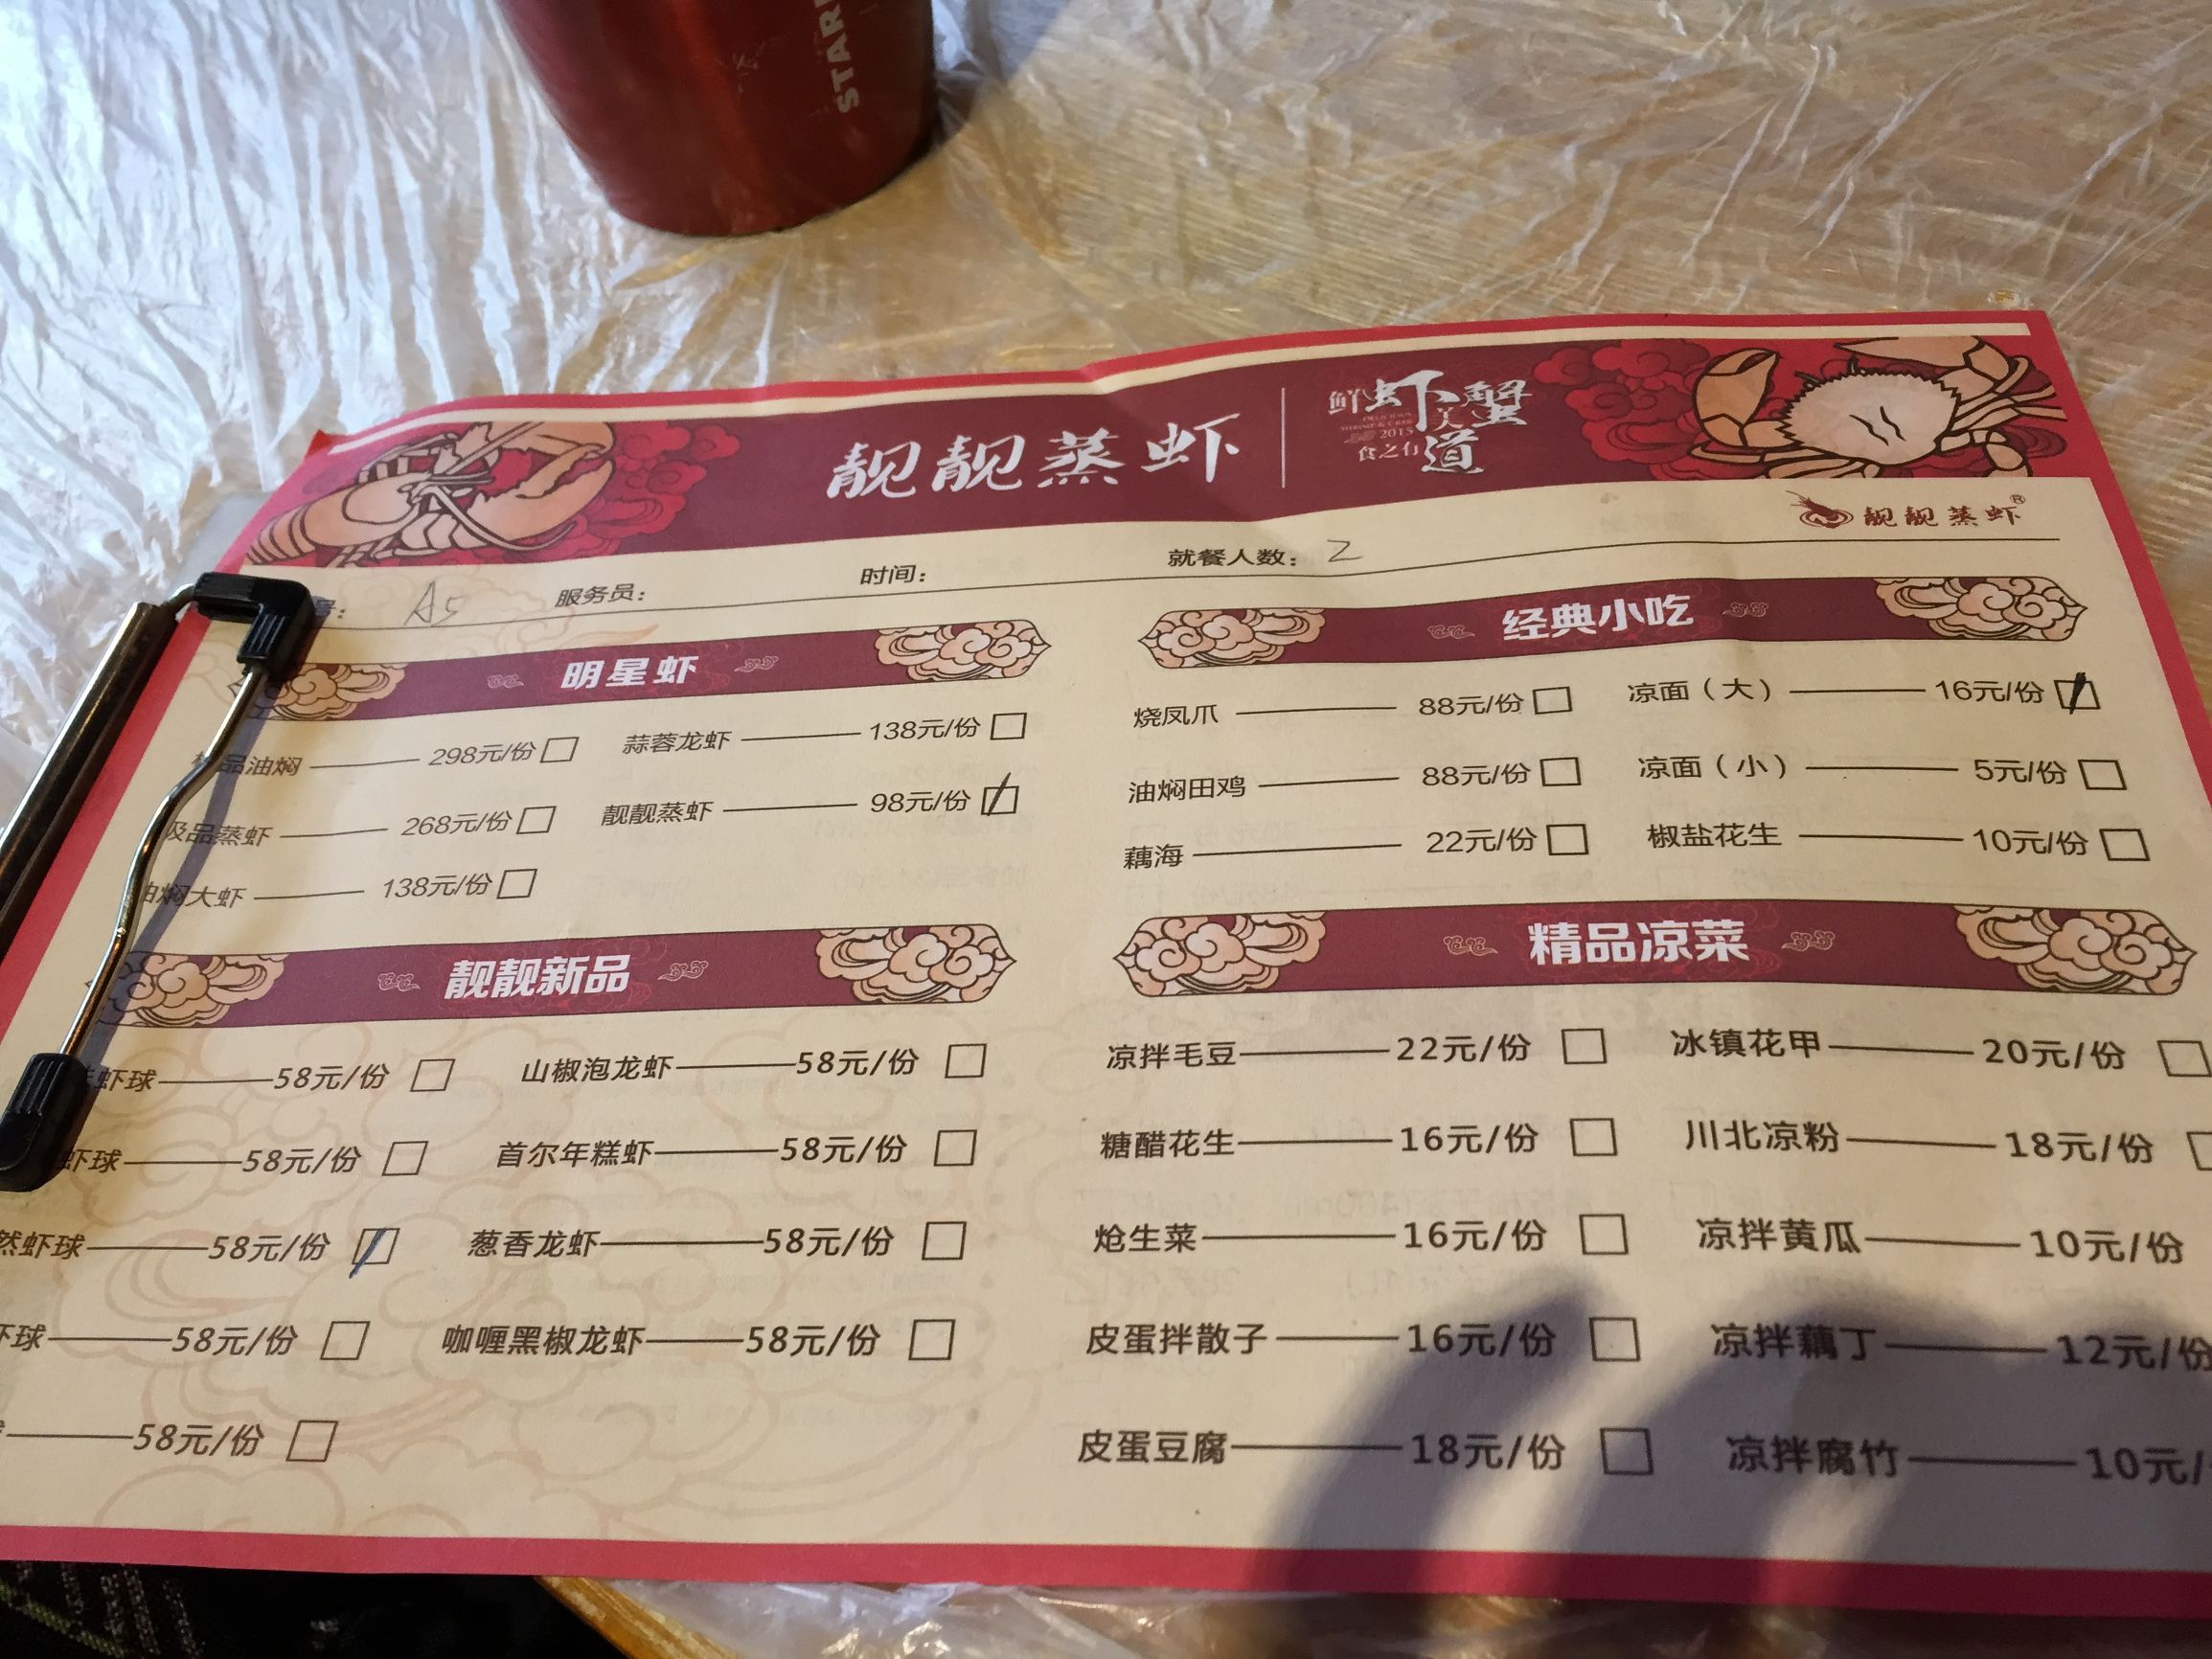 STAR
靓靓蒸虾
鲜虾蟹美
DELICIOUS
SHRIMP & CRAB
2015
食之有道
靓靓蒸虾®
号： A5 服务员： 时间： 就餐人数： 2
明星虾
品油焖 298元/份 蒜蓉龙虾 138元/份
品蒸虾 268元/份 靓靓蒸虾 98元/份
焖大虾 138元/份
经典小吃
烧凤爪 88元/份 凉面（大） 16元/份
油焖田鸡 88元/份 凉面（小） 5元/份
藕海 22元/份 椒盐花生 10元/份
靓靓新品
虾球 58元/份 山椒泡龙虾 58元/份
虾球 58元/份 首尔年糕虾 58元/份
然虾球 58元/份 葱香龙虾 58元/份
球 58元/份 咖喱黑椒龙虾 58元/份
58元/份
精品凉菜
凉拌毛豆 22元/份 冰镇花甲 20元/份
糖醋花生 16元/份 川北凉粉 18元/份
炝生菜 16元/份 凉拌黄瓜 10元/份
皮蛋拌散子 16元/份 凉拌藕丁 12元/份
皮蛋豆腐 18元/份 凉拌腐竹 10元/